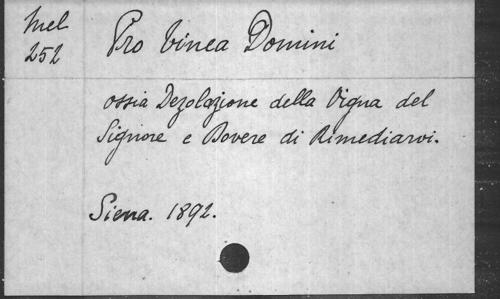 Mel
252
Pro Vinea Domini
ossia Dezolazione della Vigna del
Signore e Dovere di Rimediarvi.
Siena. 1892.